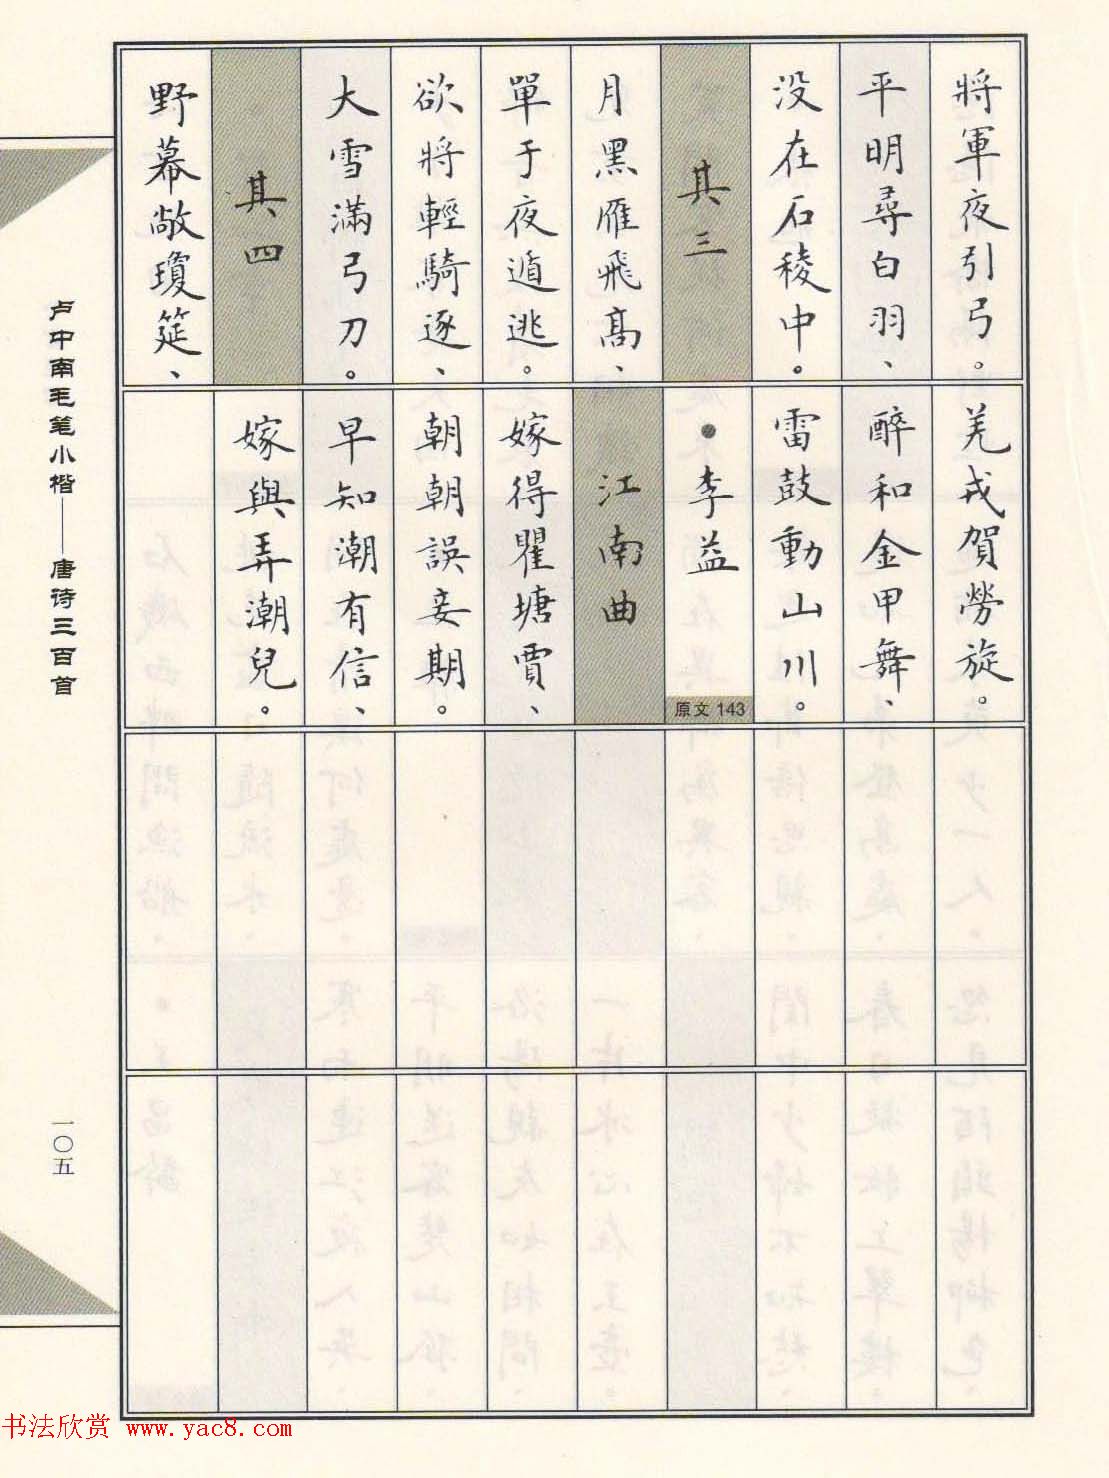 將軍夜引弓。
平明尋白羽、
没在石稜中。
其三
月黑雁飛高、
單于夜遁逃。
欲將輕騎逐、
大雪滿弓刀。
其四
野幕敞瓊筵、
羌戎賀勞旋。
醉和金甲舞、
雷鼓動山川。
●李益
原文 143
江南曲
嫁得瞿塘賈、
朝朝誤妾期。
早知潮有信、
嫁與弄潮兒。
卢中南毛笔小楷——唐诗三百首
一〇五
书法欣赏 www.yac8.com